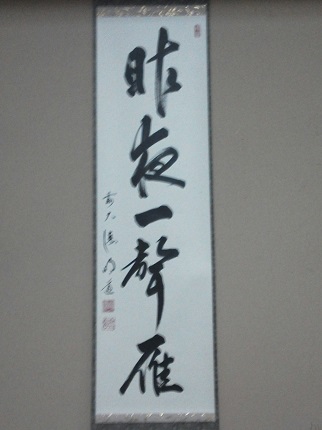 昨夜一聲雁